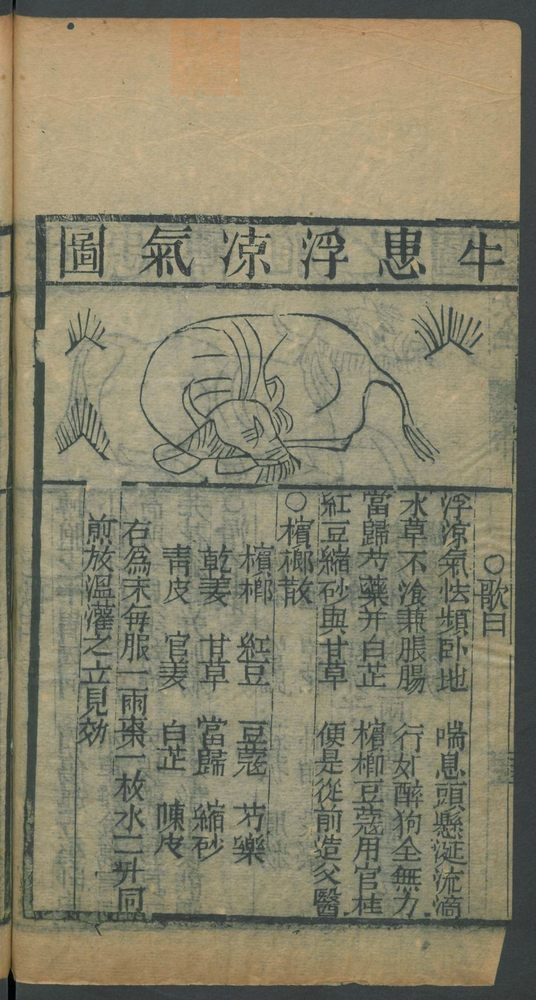 牛患浮凉氣圖
○歌曰
浮凉氣怯頻卧地 喘息頭懸涎流滴
水草不飡兼脹腸 行如醉狗全無力
當歸芍藥并白芷 檳榔豆蔻用官桂
紅豆縮砂與甘草 便是從前造父醫
○檳榔散
檳榔 紅豆 豆蔻 芍樂
乾姜 甘草 當歸 縮砂
青皮 官姜 白芷 陳皮
右爲末每服一兩棗一枚水二升同
煎放溫灌之立見効